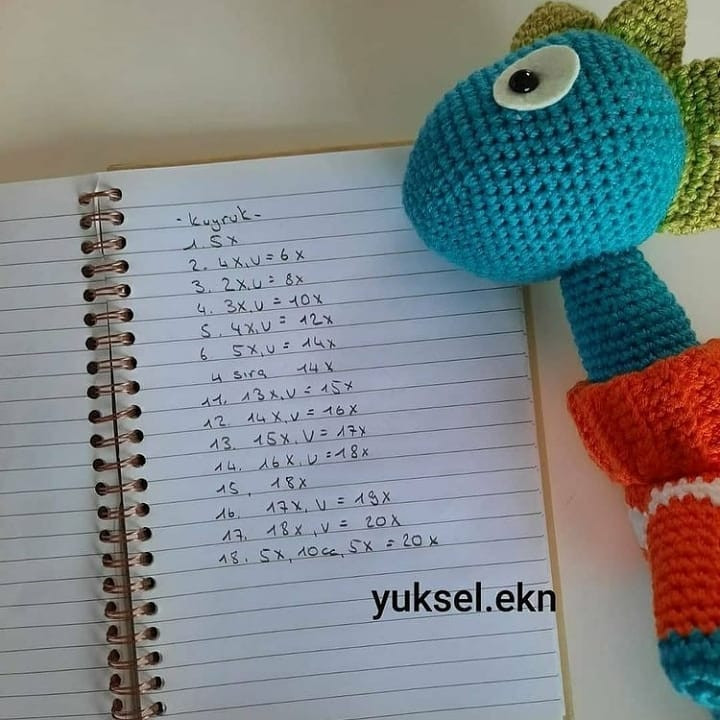 -Kuyruk-
1. 5x
2. 4x, v = 6x
3. 2x, v = 8x
4. 3x, v = 10x
5. 4x, v = 12x
6. 5x, v = 14x
4 sıra 14x
11. 13x, v = 15x
12. 14x, v = 16x
13. 15x, v = 17x
14. 16x, v = 18x
15. 18x
16. 17x, v = 19x
17. 18x, v = 20x
18. 5x, 10cc, 5x = 20x
yuksel.ekn